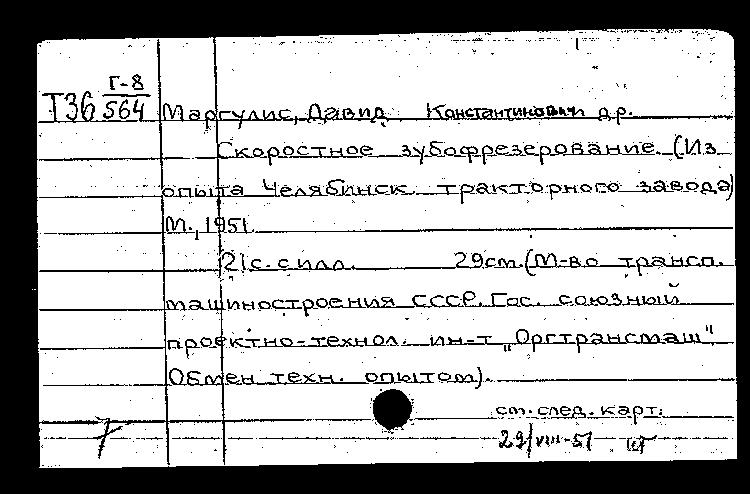 Г-8
Т36 564 Маргулис, Давид Константинович и др.
Скоростное зубофрезерование. (Из
опыта Челябинск. тракторного завода)
М., 1951.
21 с. с илл. 29 см. (М-во трансп.
машиностроения СССР. Гос. союзный
проектно-технол. ин-т "Оргтрансмаш".
Обмен техн. опытом).
см. след. карт.
29/VIII-51